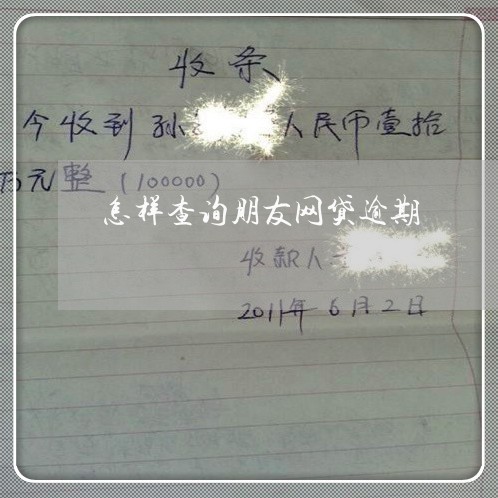 收条
今收到孙 人民币壹拾
万元整(100000)
怎样查询朋友网贷逾期
收款人
2011年6月2日